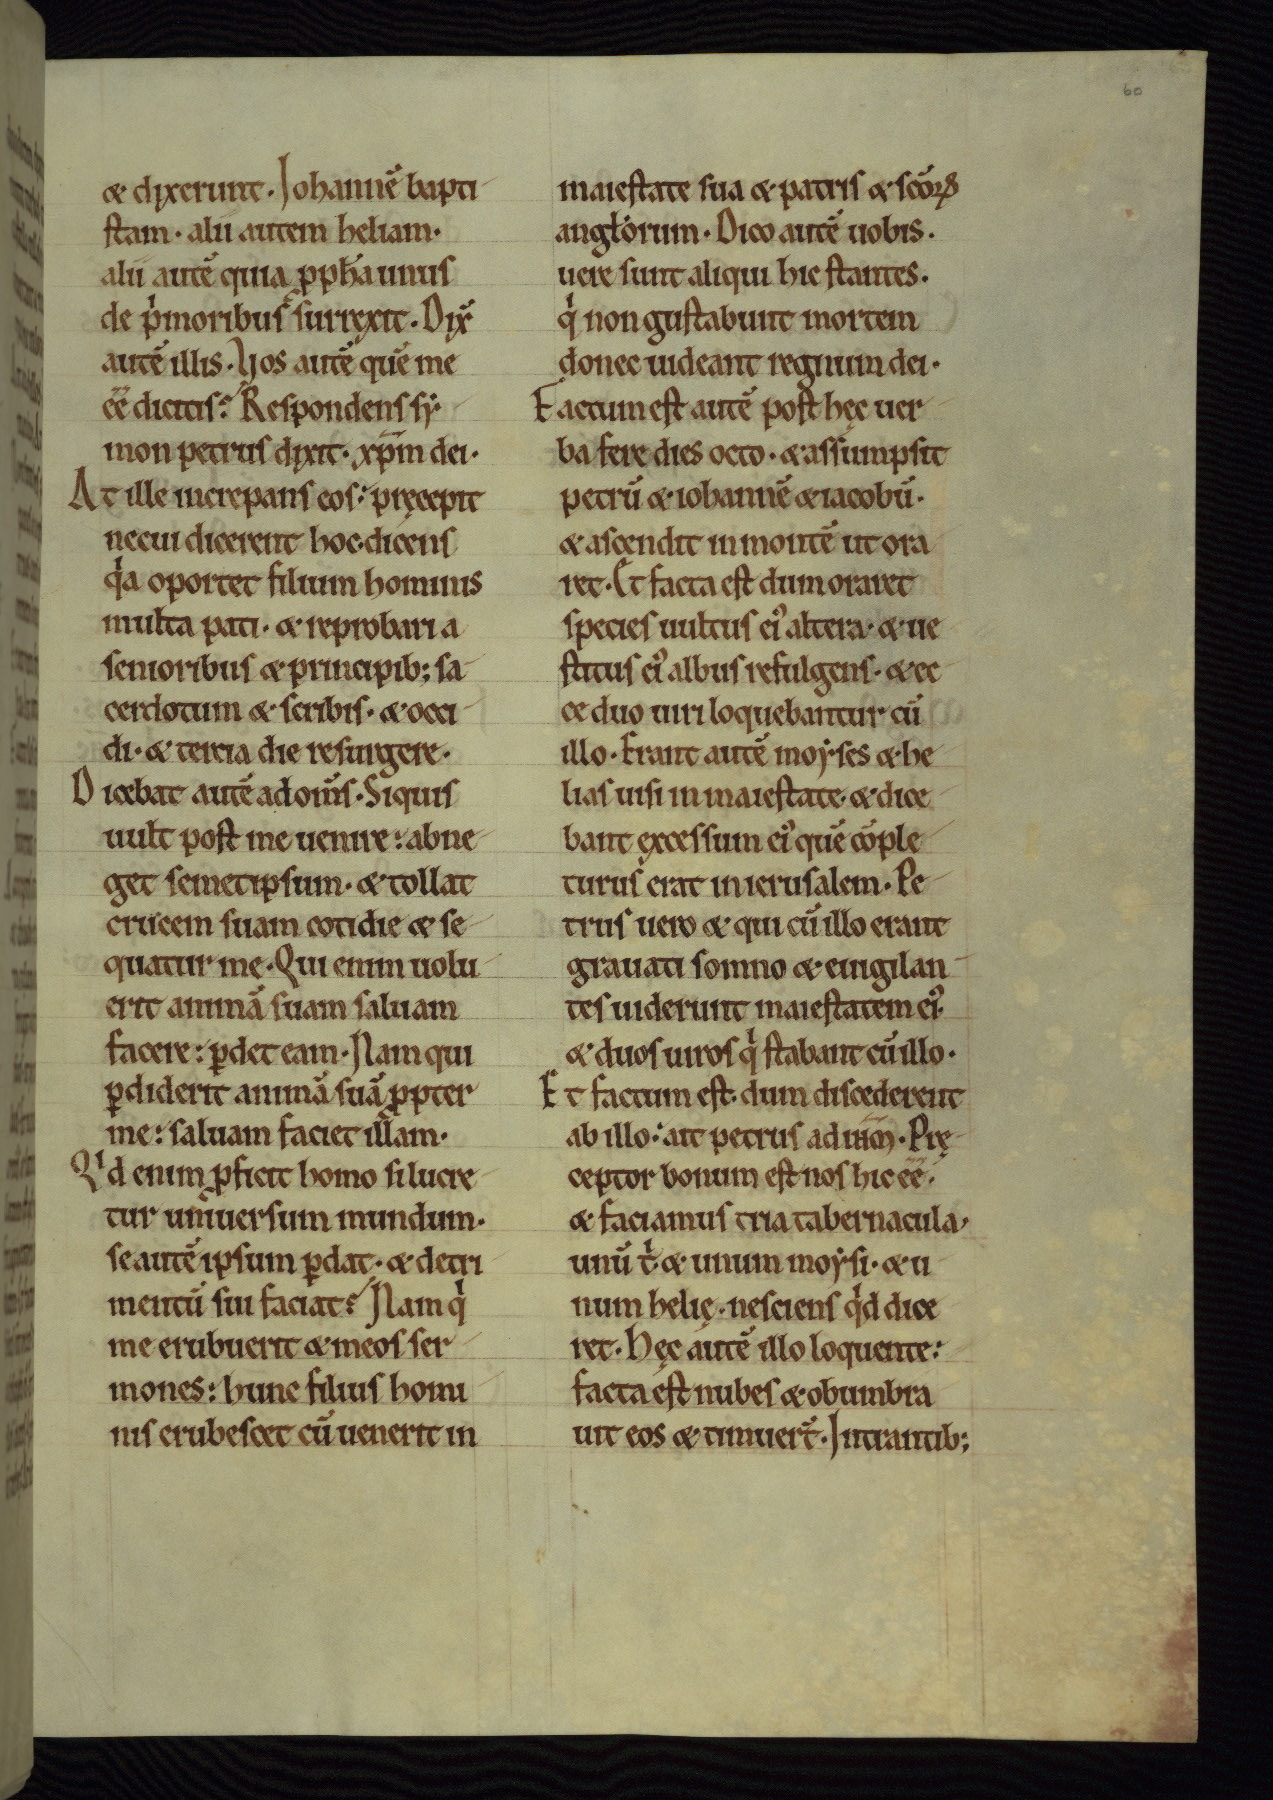 60
& dixerunt. Johannē bapti
stam. alii autem heliam.
alii autē quia ꝓph̄a unus
de pͥmoribus surrexit. Dix̄
autē illis. Vos autē quē me
ēē dicitis? Respondens sẏ
mon petrus dixit. xp̄m dei.
At ille increpans eos: pręcepit
necui dicerent hoc. dicens
qͥa oportet filium hominis
multa pati. & reprobari a
senioribus & principib; sa
cerdotum & scribis. & occi
di. & tercia die resurgere.
Dicebat autē ad om̄s. Siquis
uult post me uenire: abne
get semetipsum. & tollat
crucem suam cotidie & se
quatur me. Qui enim uolu
erit animā suam saluam
facere: ꝑdet eam. Nam qui
ꝑdiderit animā suā ꝓpter
me: saluam faciet illam.
Qͥd enim ꝓficit homo si lucre
tur uniuersum mundum.
se autē ipsum ꝑdat. & detri
mentū sui faciat? Nam qͥ
me erubuerit & meos ser
mones: hunc filius homi
nis erubescet cū uenerit in
maiestate sua & patris & sc̄oꝝ
angl̓orum. Dico autē uobis.
uere sunt aliqui hic stantes.
qͥ non gustabunt mortem
donec uideant regnum dei.
Factum est autē post hęc uer
ba fere dies octo. & assumpsit
petrū & iohannē & iacobū.
& ascendit in montē ut ora
ret. Et facta est dum oraret
species uultus eiꝰ altera. & ue
stitus eiꝰ albus refulgens. & ec
ce duo uiri loquebantur cū
illo. Erant autē moẏses & he
lias uisi in maiestate. & dice
bant excessum eiꝰ quē cōple
turus erat in ierusalem. Pe
trus uero & qui cū illo erant
grauati somno & euigilan
tes uiderunt maiestatem eiꝰ.
& duos uiros qͥ stabant cū illo.
Et factum est. dum discederent
ab illo: ait petrus ad ih̄m. Prę
ceptor bonum est nos hic ēē.
& faciamus tria tabernacula,
unū tͥ. & unum moẏsi. & u
num helię. nesciens qͥd dice
ret. Hęc autē illo loquente:
facta est nubes & obumbra
uit eos & timuer̄t. Intrantib;